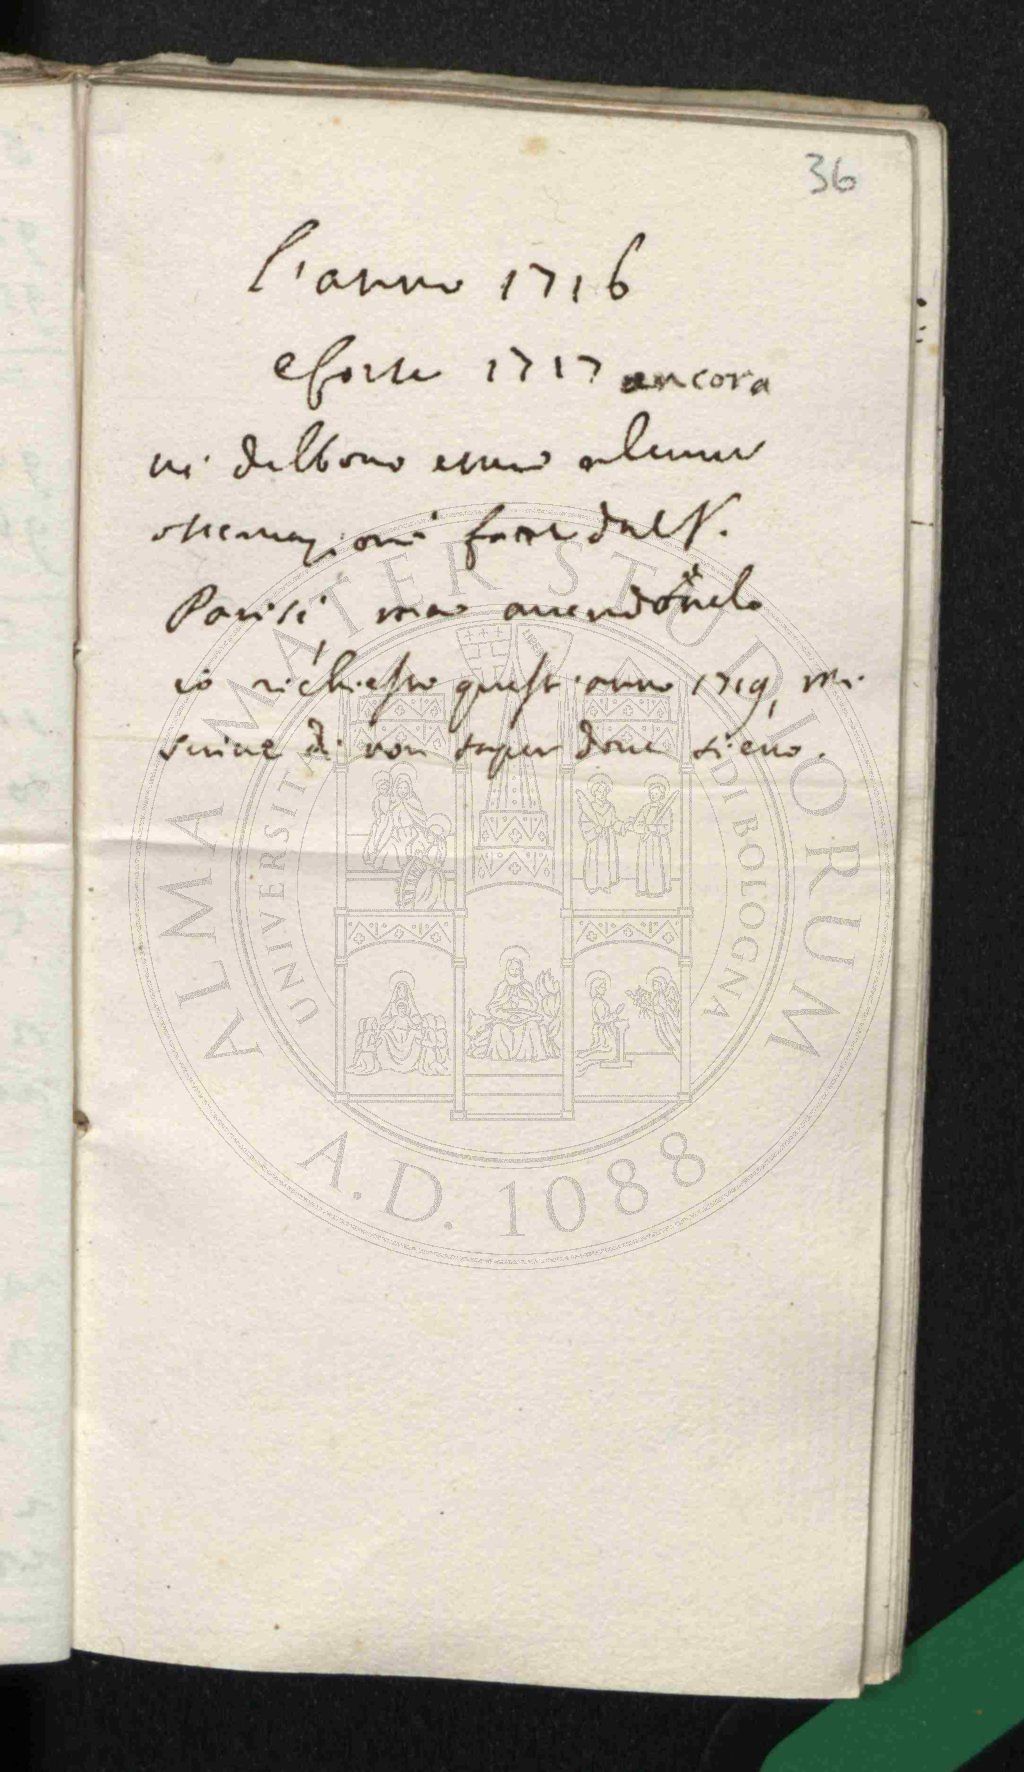 36
l'anno 1716
e forse 1717 ancora
vi debbono esser alcune
osservazioni fatte dal S.
Parisi, ma avendonelo
io richiesto quest'anno 1719, mi
scrive di non saper dove sieno.
ALMA MATER STUDIORUM
UNIVERSITÀ DI BOLOGNA
A.D. 1088